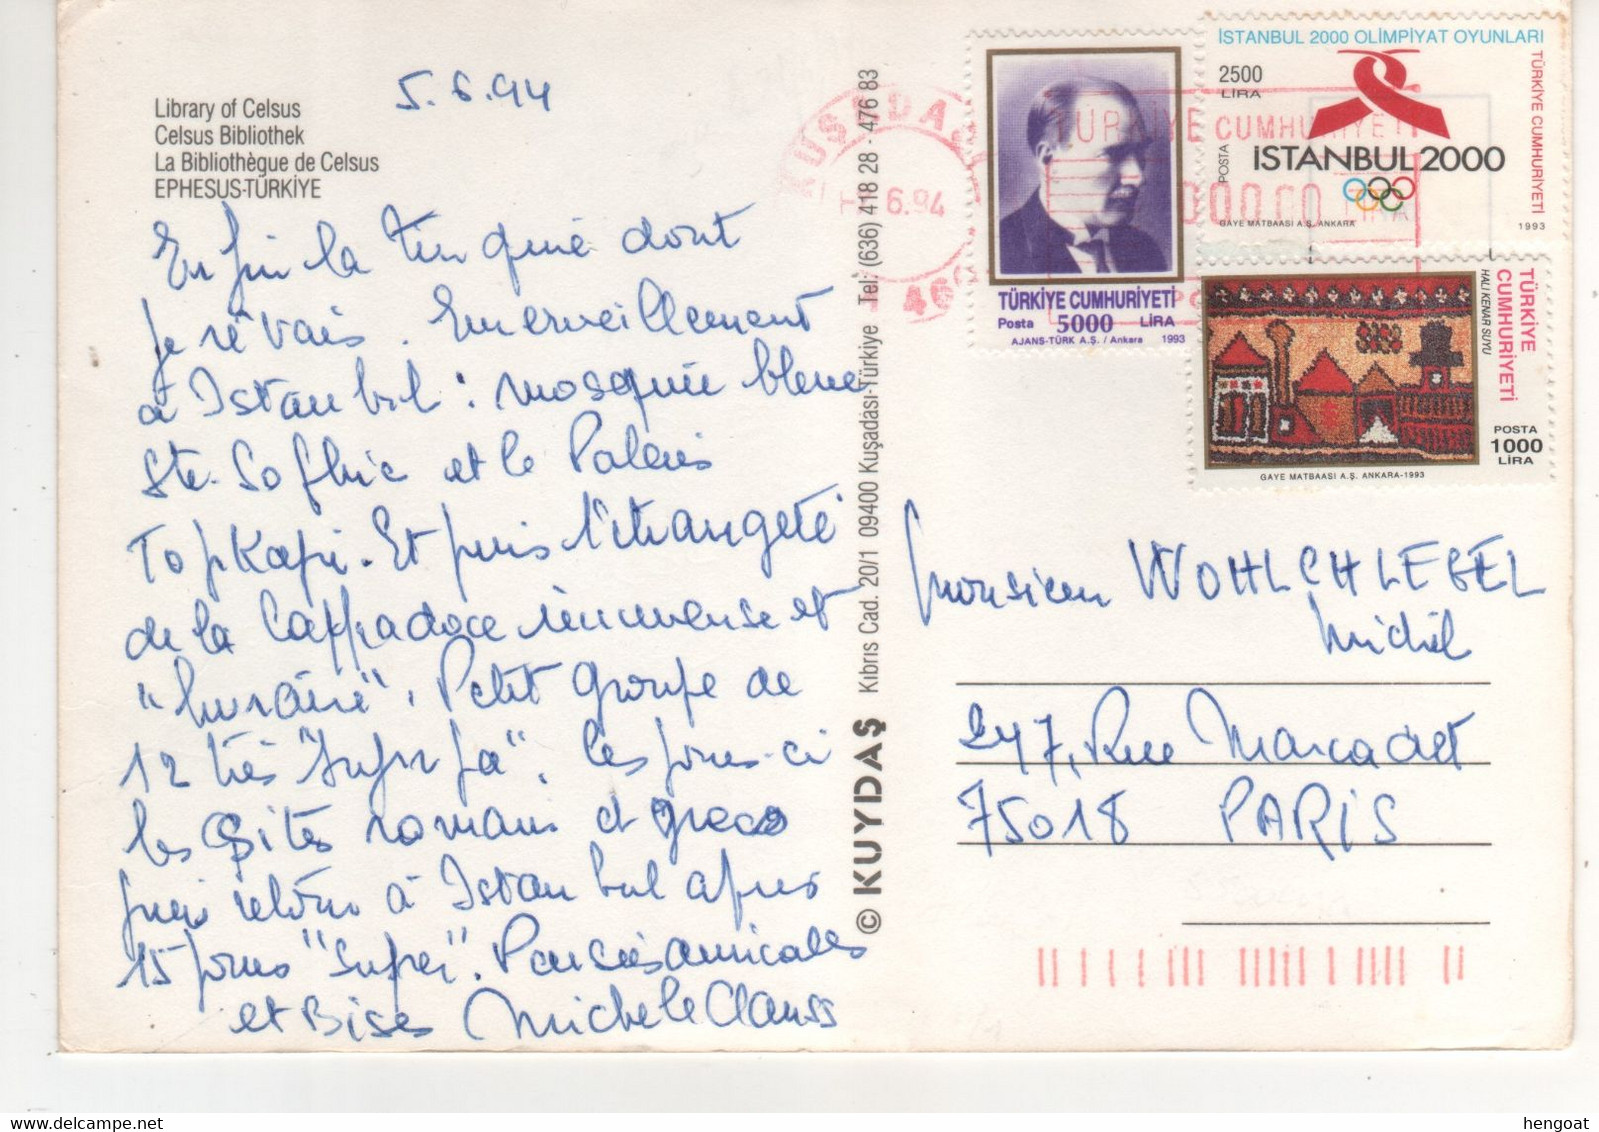 5.6.94
Library of Celsus
Celsus Bibliothek
La Bibliothègue de Celsus
EPHESUS-TÜRKİYE
Enfin la Turquie dont
je rêvais. Emerveillement
à Istanbul : mosquée bleue
Ste-Sophie et le Palais
Topkapi. Et puis l'étrangeté
de la Cappadoce immense et
"lunaire". Petit groupe de
12 très sympa". les jours-ci
les sites romains et grecs
puis retour à Istanbul après
15 jours "super". Pensées amicales
et Bises Michele Clauss
© KUYDAŞ Kıbrıs Cad. 20/1 09400 Kuşadası-Türkiye Tel: (636) 418 28 - 476 83
KUŞADASI
6.94
TÜRKİYE CUMHURİYETİ
TÜRKİYE CUMHURİYETİ
Posta 5000 LİRA
AJANS-TÜRK A.Ş. / Ankara 1993
İSTANBUL 2000 OLİMPİYAT OYUNLARI
2500
LİRA
POSTA
TÜRKİYE CUMHURİYETİ
İSTANBUL 2000
GAYE MATBAASI A.Ş. ANKARA
1993
TÜRKİYE
CUMHURİYETİ
HALI KENAR SUYU
POSTA
1000
LİRA
GAYE MATBAASI A.Ş. ANKARA-1993
Monsieur WOHLCHLEGEL
Michel
247, Rue Marcadet
75018 PARIS
hengoat